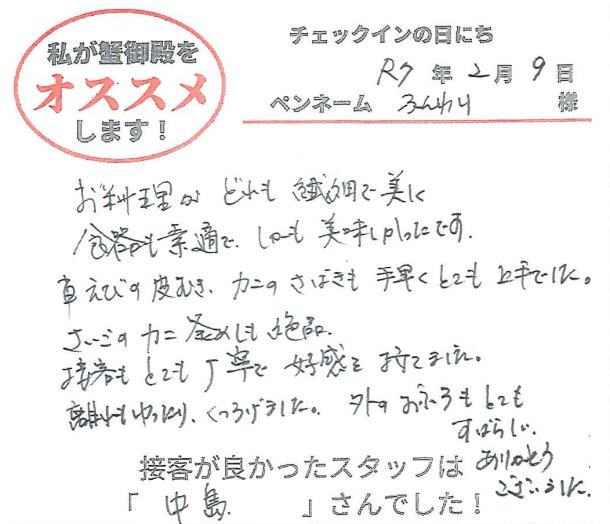 私が蟹御殿を
オススメ
します！
チェックインの日にち
R7年2月9日
ペンネーム ふんわり 様
お料理が どれも 繊細で美に
食器も素適で、しかも 美味しかったです。
車えびの皮むき、カニのさばきも 手早くとても 上手でした。
さいごのカニ釜めしも絶品。
接客もとても丁寧で 好感を 持てました。
離れもゆったり、くつろげました。外のおふろもとても
すばらしい。
ありがとう
ございました。
接客が良かったスタッフは
「 中島 」さんでした！